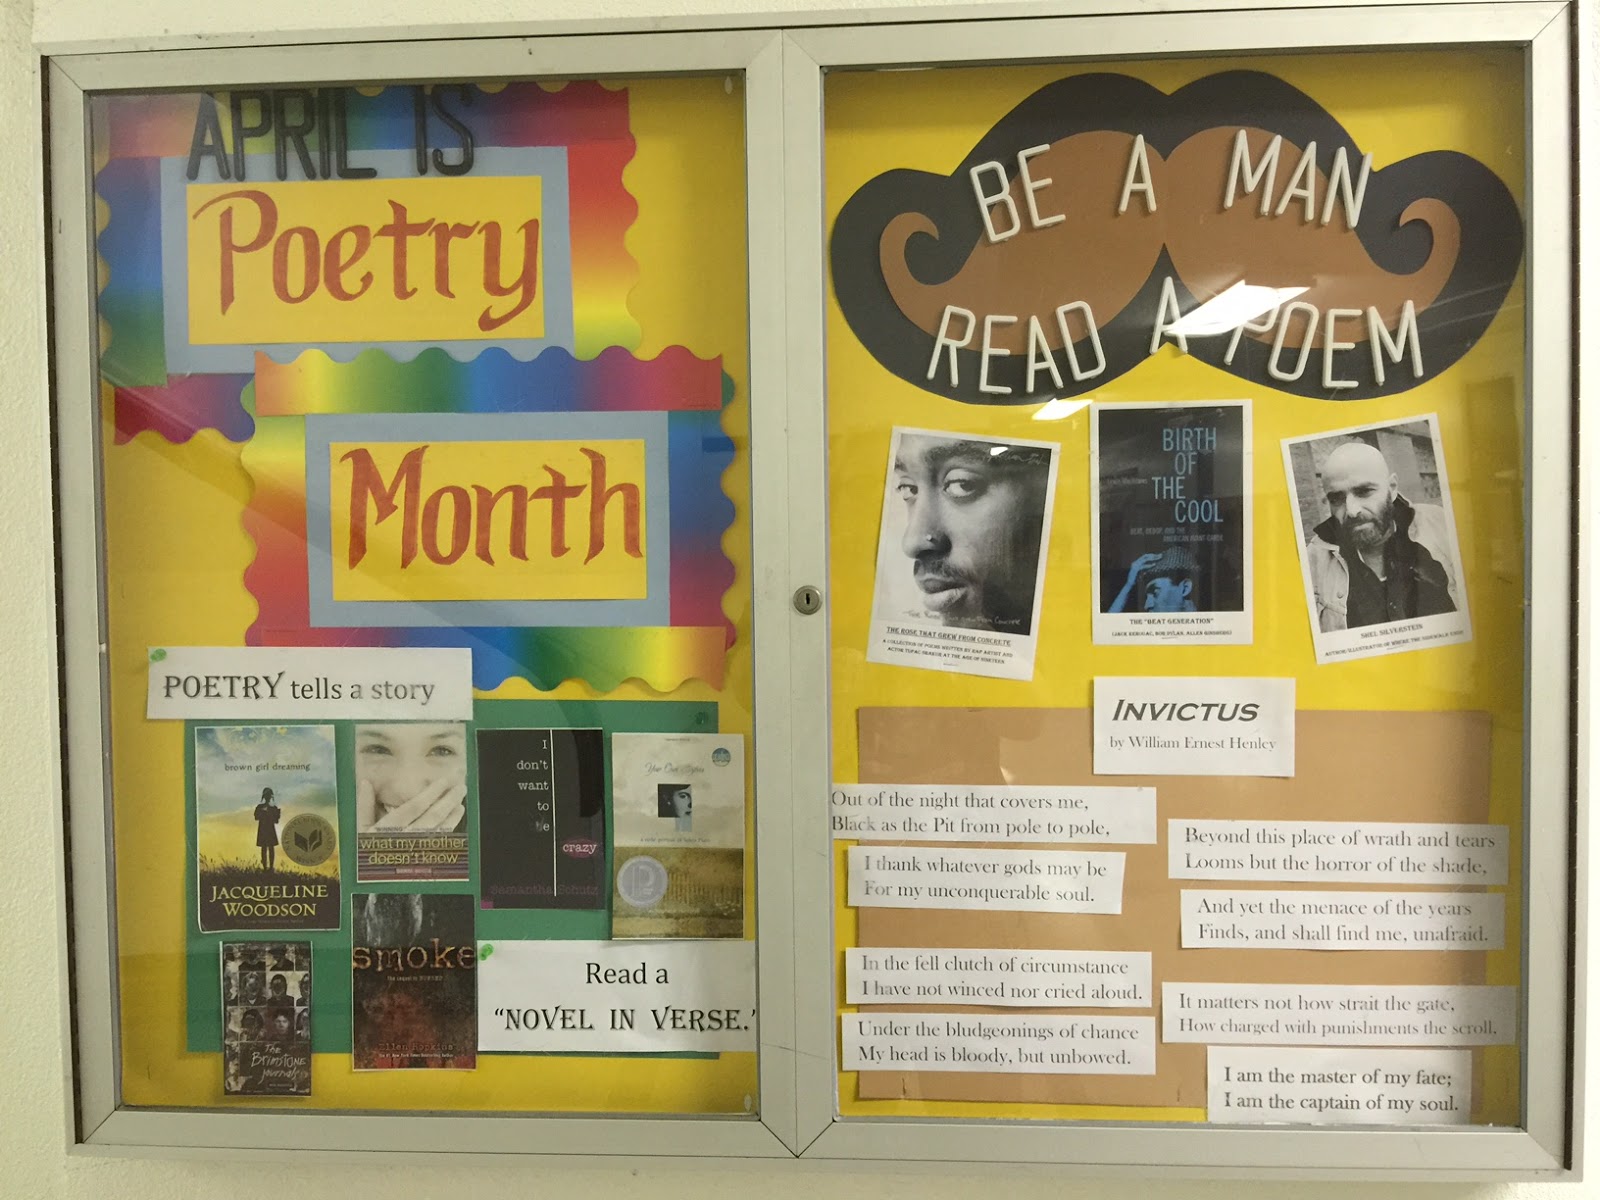 APRIL IS
Poetry
Month
POETRY tells a story
brown girl dreaming
JACQUELINE
WOODSON
what my mother
doesn't know
I
don't
want
to
be
crazy
Samantha Schutz
Your Own, Sylvia
a verse portrait of Sylvia Plath
THE
BRIMSTONE
JOURNALS
smoke
THE SEQUEL TO BURNED
Ellen Hopkins
Read a
"NOVEL IN VERSE."
BE A MAN
READ A POEM
THE ROSE THAT GREW FROM CONCRETE
A COLLECTION OF POEMS WRITTEN BY RAP ARTIST AND
ACTOR TUPAC SHAKUR AT THE AGE OF NINETEEN
BIRTH
OF
THE
COOL
BEAT, BEBOP, AND THE
AMERICAN AVANT GARDE
THE "BEAT GENERATION"
(JACK KEROUAC, BOB DYLAN, ALLEN GINSBERG)
SHEL SILVERSTEIN
AUTHOR/ILLUSTRATOR OF WHERE THE SIDEWALK ENDS
INVICTUS
by William Ernest Henley
Out of the night that covers me,
Black as the Pit from pole to pole,
I thank whatever gods may be
For my unconquerable soul.
In the fell clutch of circumstance
I have not winced nor cried aloud.
Under the bludgeonings of chance
My head is bloody, but unbowed.
Beyond this place of wrath and tears
Looms but the horror of the shade,
And yet the menace of the years
Finds, and shall find me, unafraid.
It matters not how strait the gate,
How charged with punishments the scroll,
I am the master of my fate;
I am the captain of my soul.